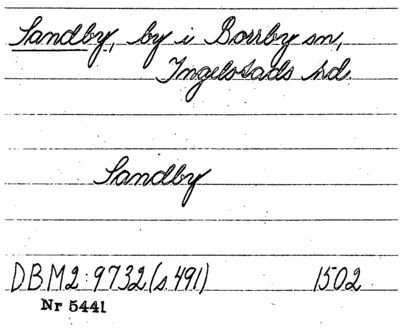 Sandby, by i Borrby sn,
Ingelstads hd.
Sandby
DBM2:9732(s.491) 1502
Nr 5441